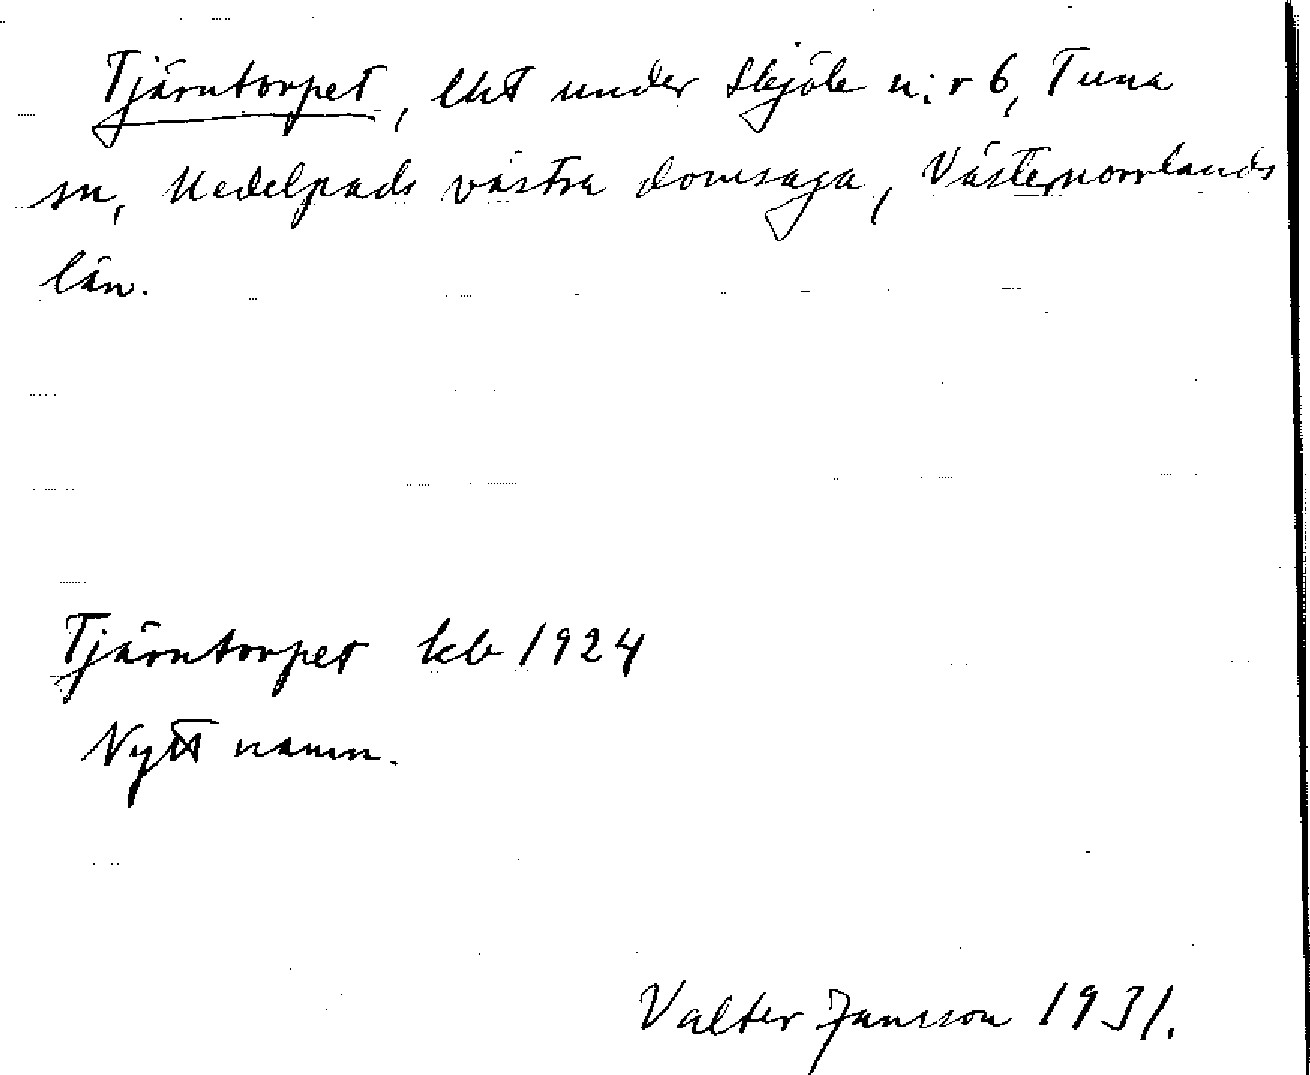 Tjärntorpet, lht under Skjöle n:r 6, Tuna
sn, Medelpads västra domsaga, Västernorrlands
län.
Tjärntorpet kb 1924
Nytt namn.
Valter Jansson 1931.